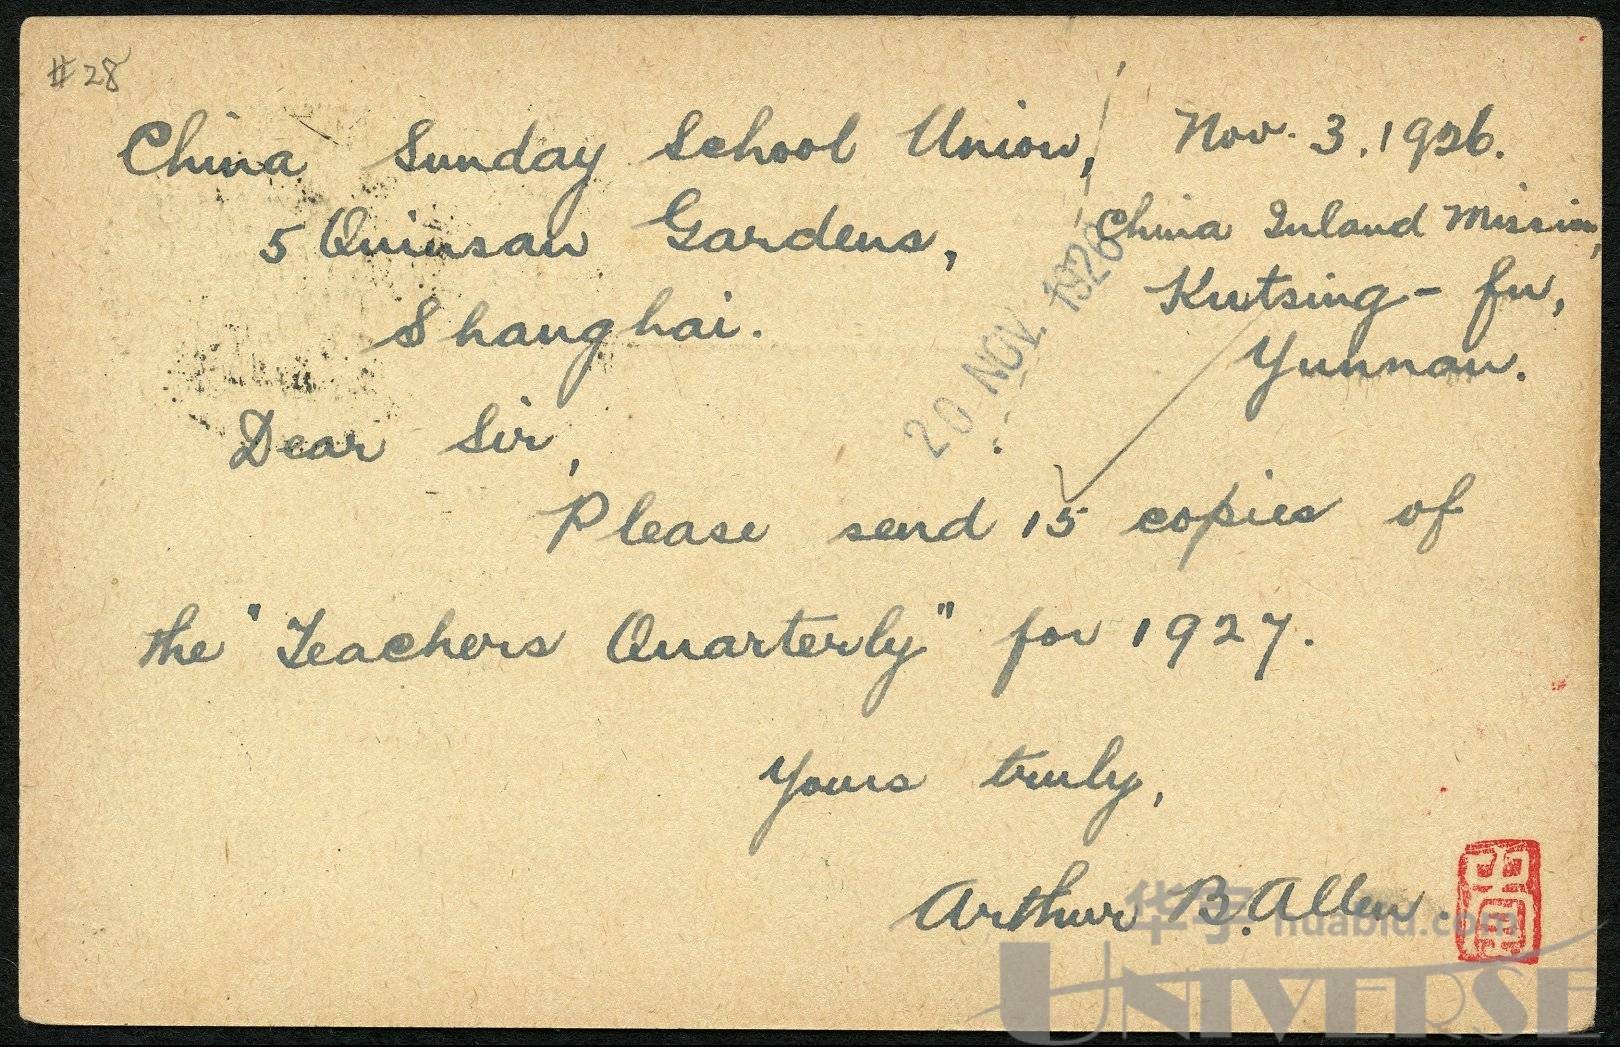 #28
China Sunday School Union, Nov. 3, 1926.
5 Quinsan Gardens, China Inland Mission,
Shanghai. Kutsing-fu,
Yunnan.
20 NOV. 1926
Dear Sir,
Please send 15 copies of
the "Teachers Quarterly" for 1927.
Yours truly,
Arthur B. Allen.
华宇 huabid.com
UNIVERSE